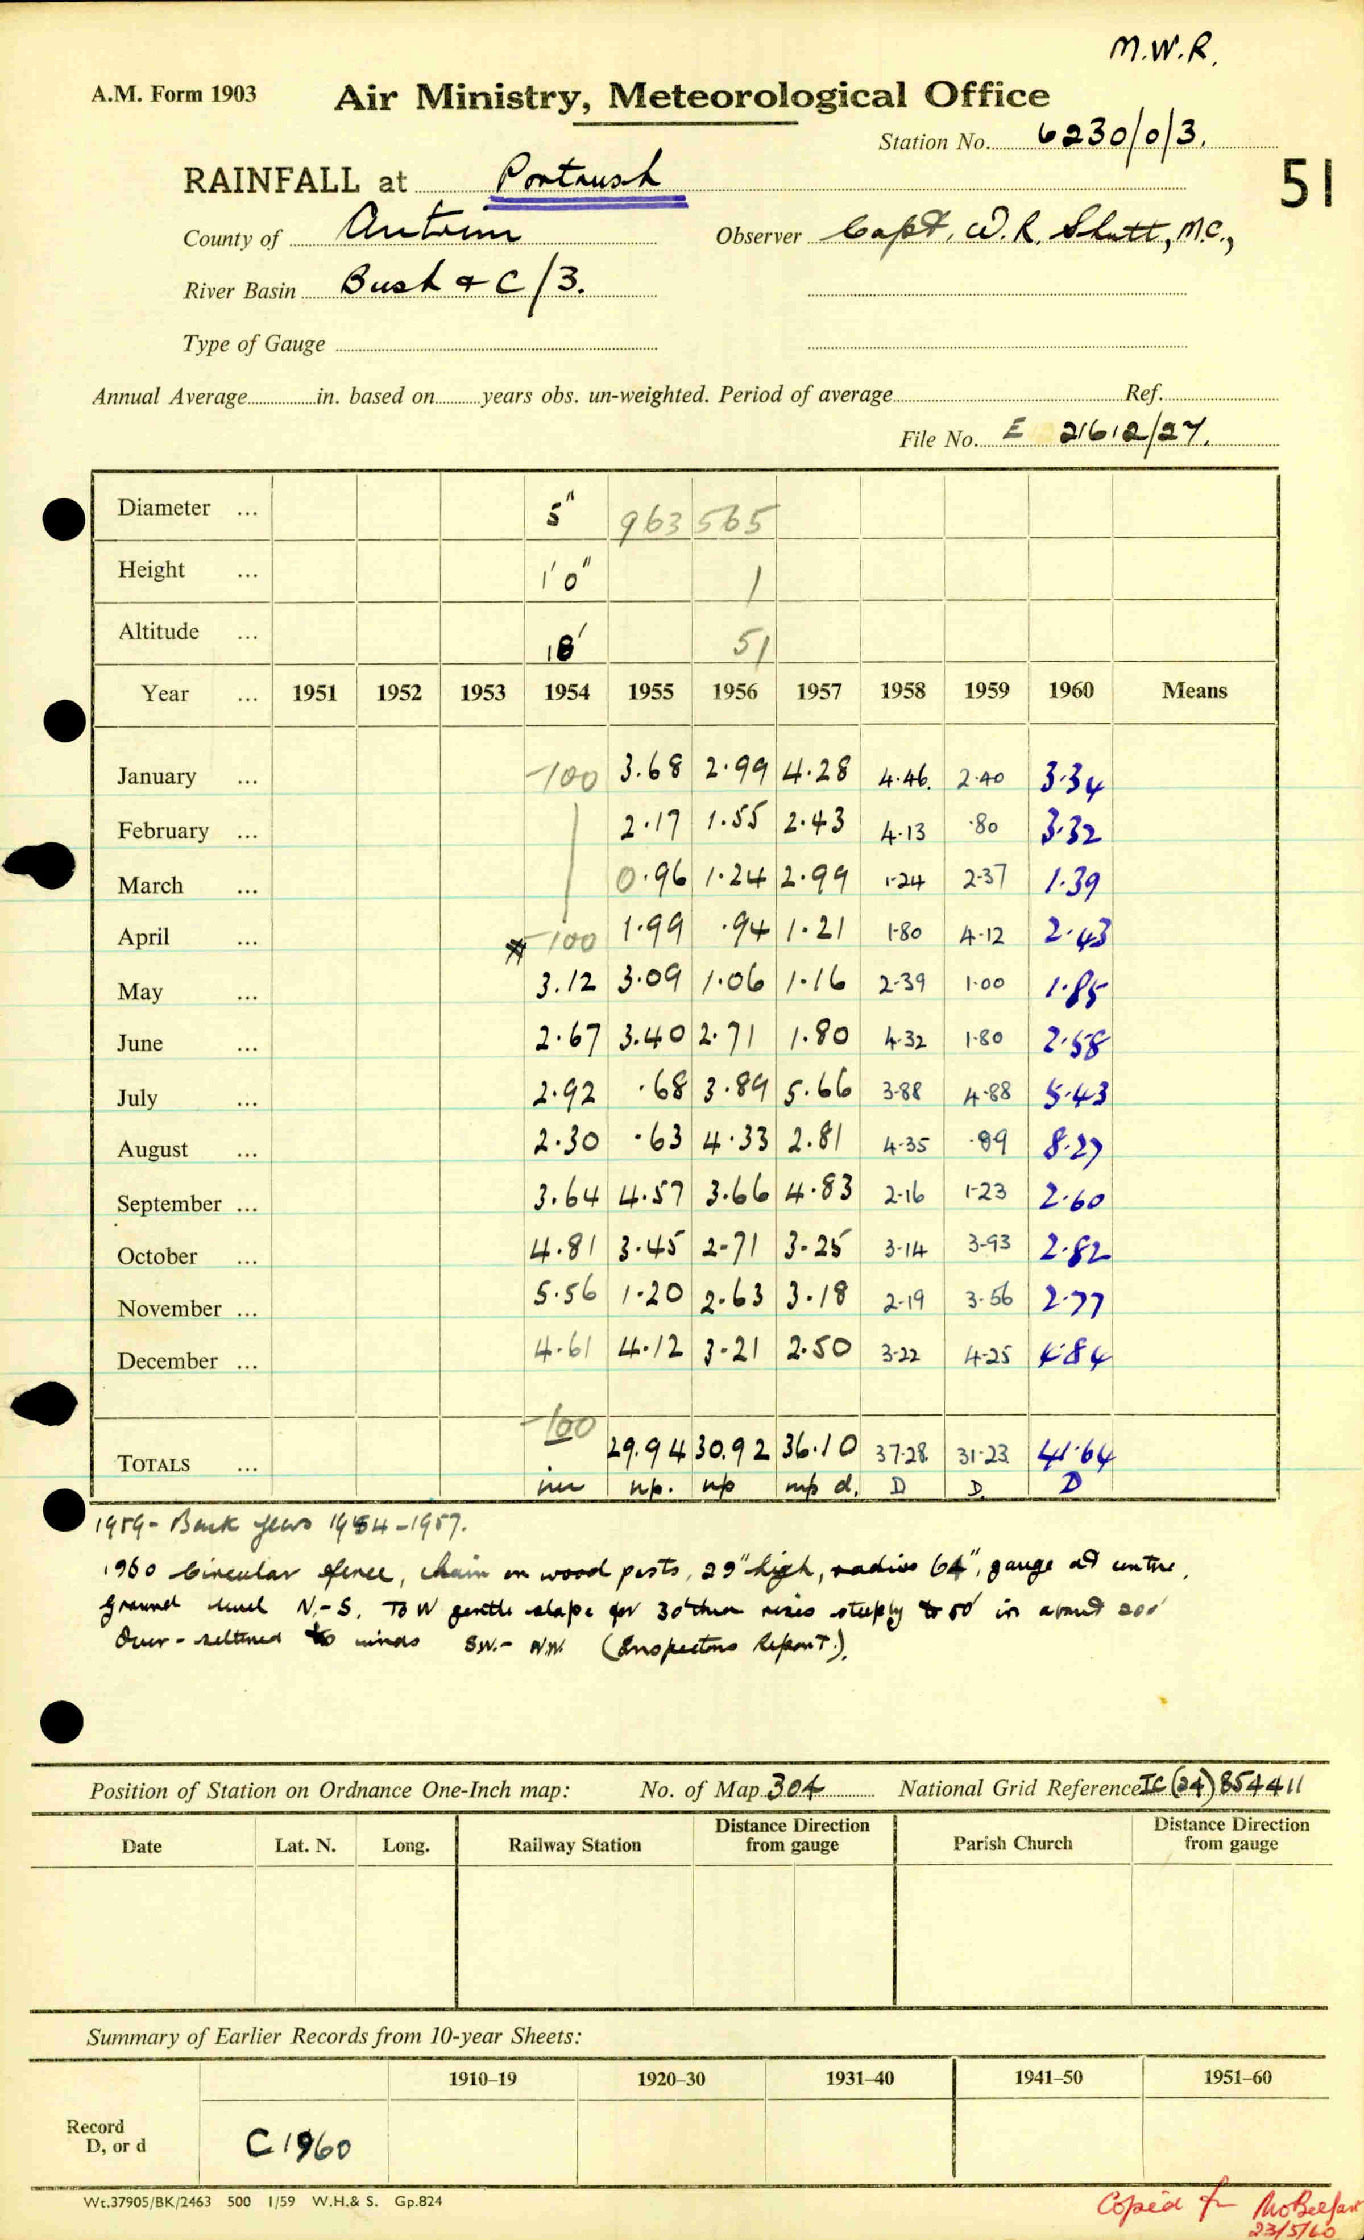 M.W.R.
A.M. Form 1903 Air Ministry, Meteorological Office
Station No. 6230/0/3.
RAINFALL at Portrush 51
County of Antrim Observer Capt. W.R. Shutt, M.C.,
River Basin Bush & C/3.
Type of Gauge
Annual Average in. based on years obs. un-weighted. Period of average Ref.
File No. E 21612/27.
Diameter ... 5" 963 565
Height ... 1'0" 1
Altitude ... 18' 51
Year ... 1951 1952 1953 1954 1955 1956 1957 1958 1959 1960 Means
January ... -100 3.68 2.99 4.28 4.46. 2.40 3.34
February ... 2.17 1.55 2.43 4.13 .80 3.32
March ... 0.96 1.24 2.99 1.24 2.37 1.39
April ... -100 1.99 .94 1.21 1.80 4.12 2.43
May ... 3.12 3.09 1.06 1.16 2.39 1.00 1.85
June ... 2.67 3.40 2.71 1.80 4.32 1.80 2.58
July ... 2.92 .68 3.89 5.66 3.88 4.88 5.43
August ... 2.30 .63 4.33 2.81 4.35 .89 8.27
September ... 3.64 4.57 3.66 4.83 2.16 1.23 2.60
October ... 4.81 3.45 2.71 3.25 3.14 3.93 2.82
November ... 5.56 1.20 2.63 3.18 2.19 3.56 2.77
December ... 4.61 4.12 3.21 2.50 3.22 4.25 4.84
-100
TOTALS ... 29.94 30.92 36.10 37.28. 31.23 41.64
inc np. np mp d. D D. D
1959 - Back years 1954-1957.
1960 Circular fence, chain on wood posts, 29" high, radius 64", gauge at centre.
Ground level N.-S. To W gentle slope for 30' then rises steeply to 50' in about 200'
Over-sheltered to winds SW.- NW. (Inspectors Report.).
Position of Station on Ordnance One-Inch map: No. of Map 304 National Grid Reference IC (24) 854411
Date Lat. N. Long. Railway Station Distance Direction from gauge Parish Church Distance Direction from gauge
Summary of Earlier Records from 10-year Sheets:
1910–19 1920–30 1931–40 1941–50 1951–60
Record
D, or d C1960
Wt.37905/BK/2463 500 1/59 W.H.& S. Gp.824
Copied for MO Belfast
23/5/60